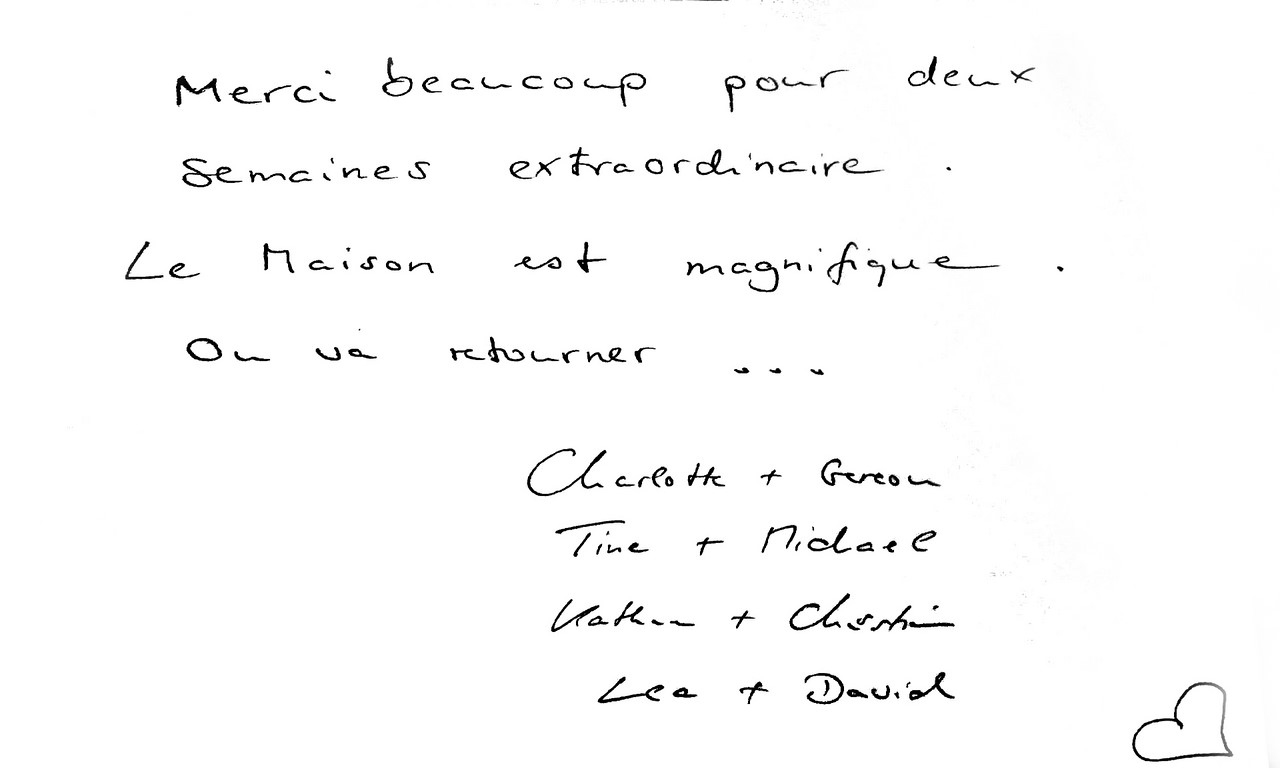 Merci beaucoup pour deux
semaines extraordinaire .
Le Maison est magnifique .
On va retourner ...
Charlotte + Gereon
Tine + Michael
+ Christin
Lea + David